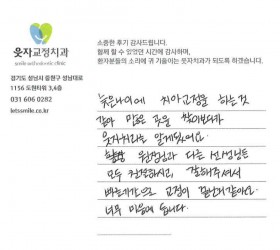 웃자교정치과
smile orthodontic clinic
경기도 성남시 중원구 성남대로
1156 도현타워 3,4층
031 606 0282
letssmile.co.kr
소중한 후기 감사드립니다.
함께 할 수 있었던 시간에 감사하며,
환자분들의 소리에 귀 기울이는 웃자치과가 되도록 하겠습니다.
늦은나이에 치아교정을 하는것
같아 많은 곳을 찾아보다가
웃자치과를 알게됐어요.
원장님과 다른 선생님들
모두 친절하시고, 잘해주셔서
빠른기간으로 교정이 끝난거같아요.
너무 마음에 듭니다.